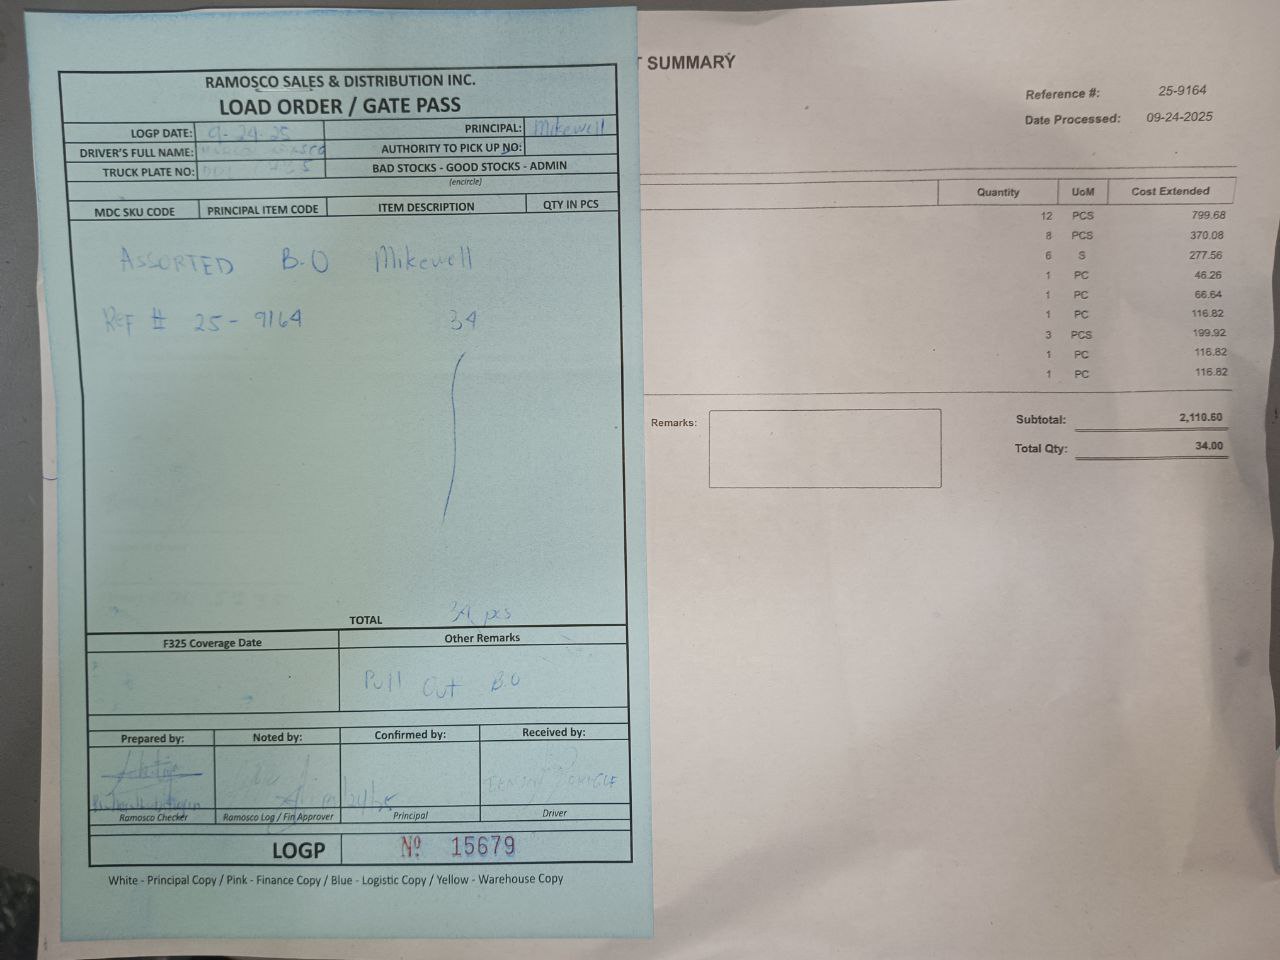 RAMOSCO SALES & DISTRIBUTION INC.
LOAD ORDER / GATE PASS
LOGP DATE: 9-24-25 PRINCIPAL: Mikewell
DRIVER'S FULL NAME: AUTHORITY TO PICK UP NO:
TRUCK PLATE NO: BAD STOCKS - GOOD STOCKS - ADMIN
(encircle)
MDC SKU CODE PRINCIPAL ITEM CODE ITEM DESCRIPTION QTY IN PCS
ASSORTED B.O Mikewell
REF # 25-9164 34
TOTAL 34 pcs
F325 Coverage Date Other Remarks
Pull Out B.O
Prepared by: Noted by: Confirmed by: Received by:
Ramosco Checker Ramosco Log / Fin Approver Principal Driver
LOGP Nº 15679
White - Principal Copy / Pink - Finance Copy / Blue - Logistic Copy / Yellow - Warehouse Copy
SUMMARY
Reference #: 25-9164
Date Processed: 09-24-2025
Quantity UoM Cost Extended
12 PCS 799.68
8 PCS 370.08
6 S 277.56
1 PC 46.26
1 PC 66.64
1 PC 116.82
3 PCS 199.92
1 PC 116.82
1 PC 116.82
Remarks: Subtotal: 2,110.60
Total Qty: 34.00